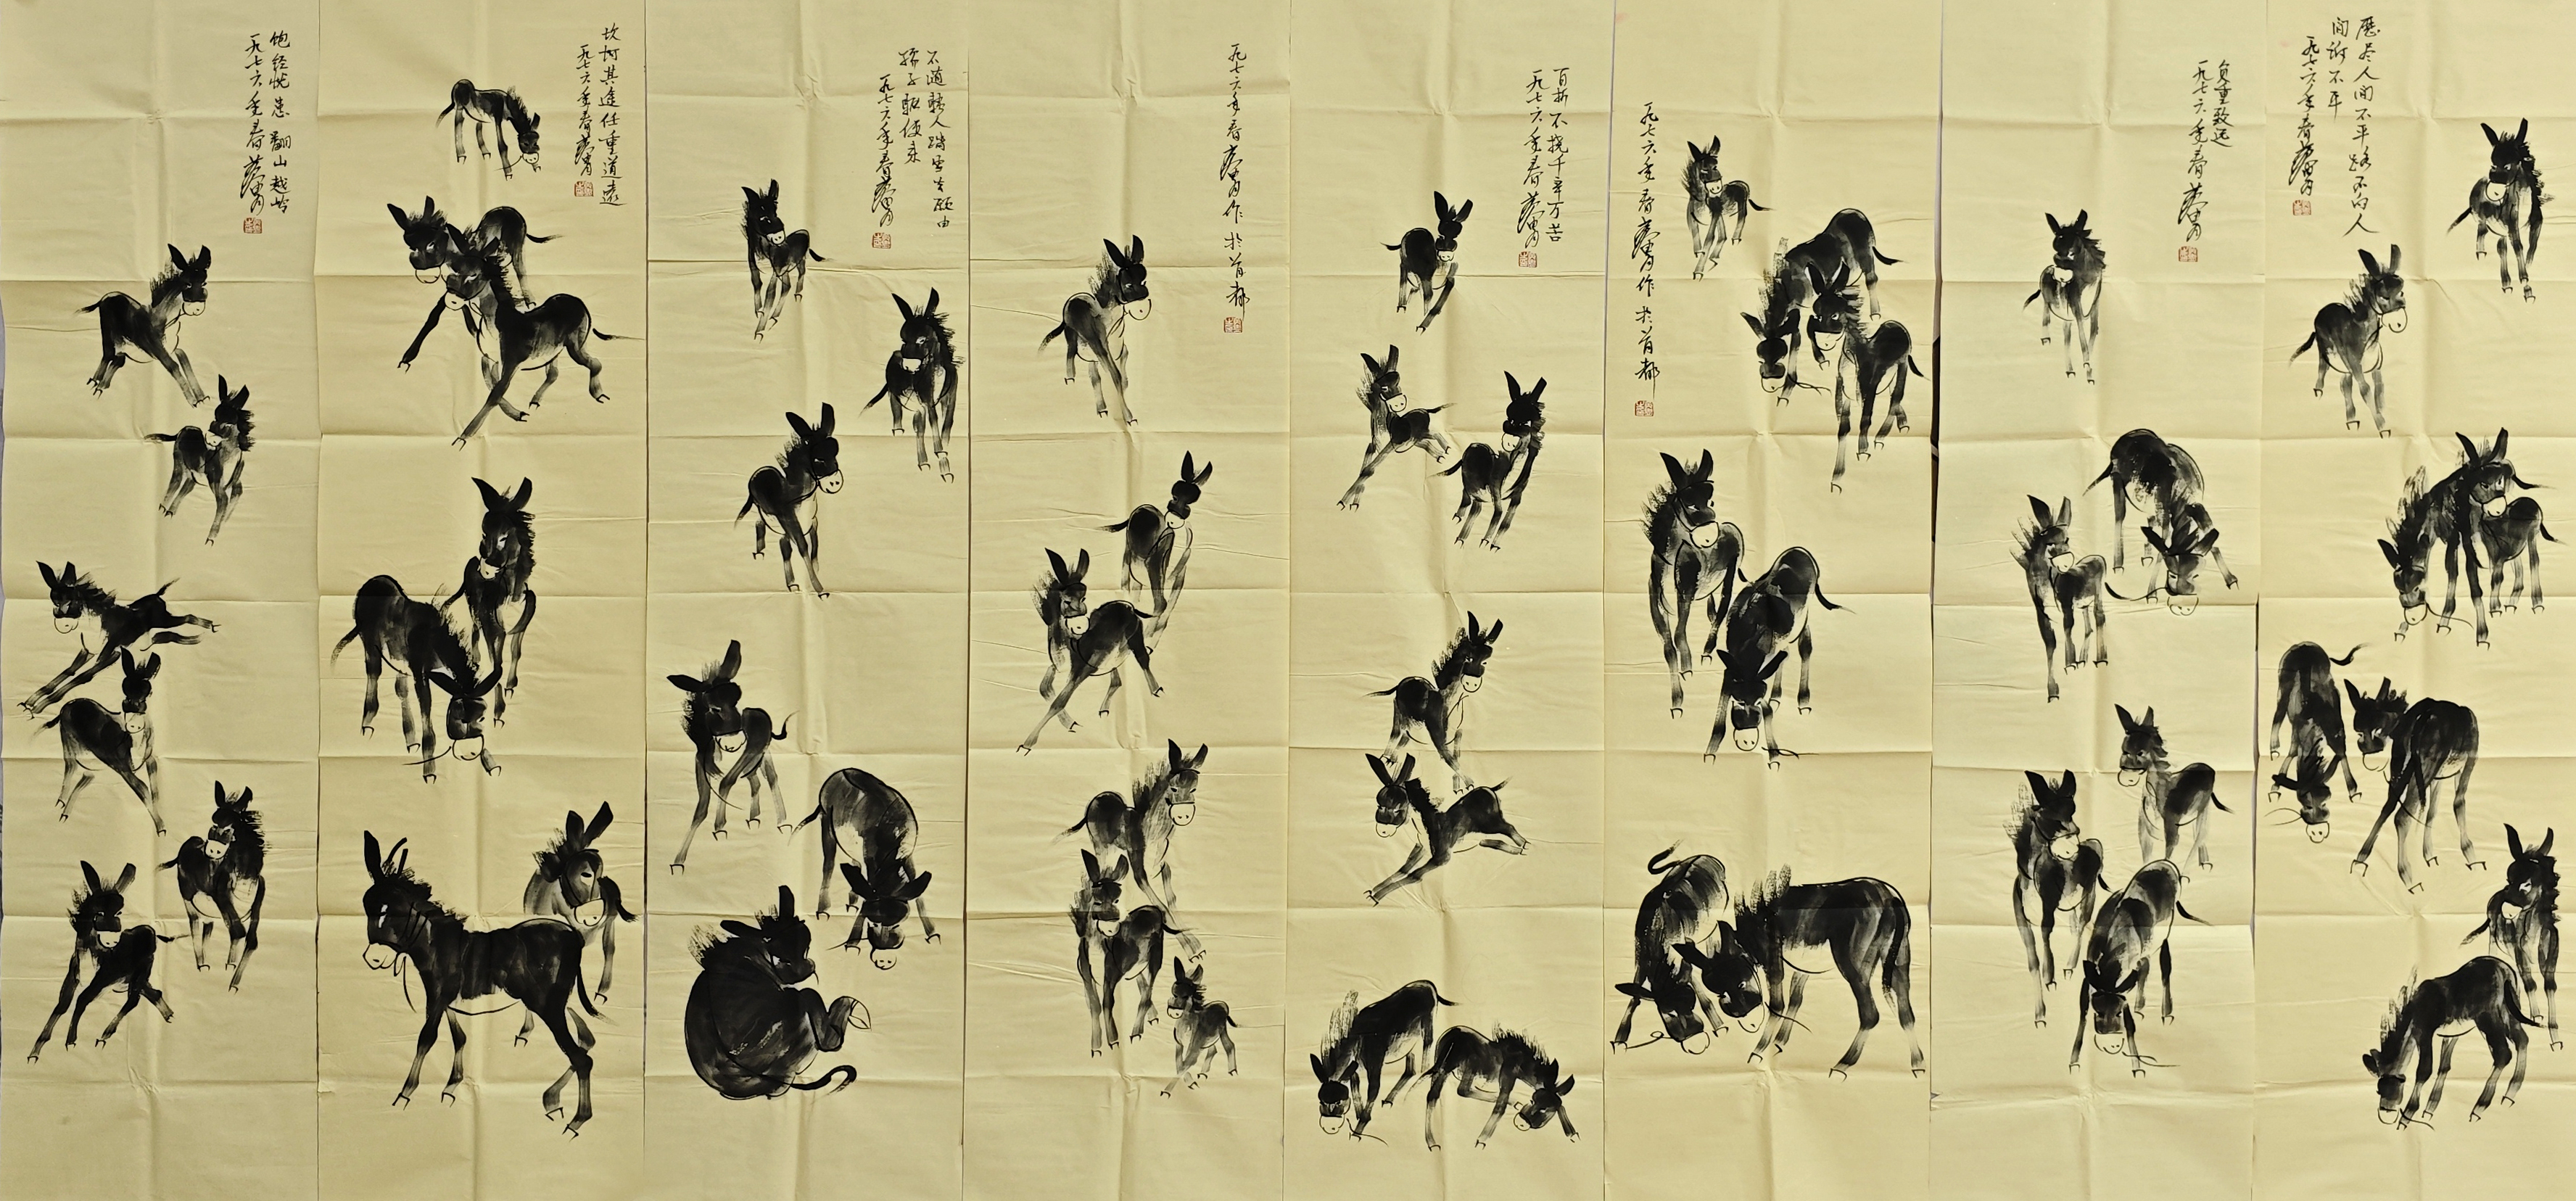 歷尽人间不平路不向人
间诉不平
一九七六年春黄胄
负重致远
一九七六年春黄胄
一九七六年春黄胄作於首都
百折不挠千辛万苦
一九七六年春黄胄
一九七六年春黄胄作於首都
不随骚人踏雪去愿由
孩子驱使来
一九七六年春黄胄
坎坷其途任重道遠
一九七六年春黄胄
饱经忧患翻山越岭
一九七六年春黄胄